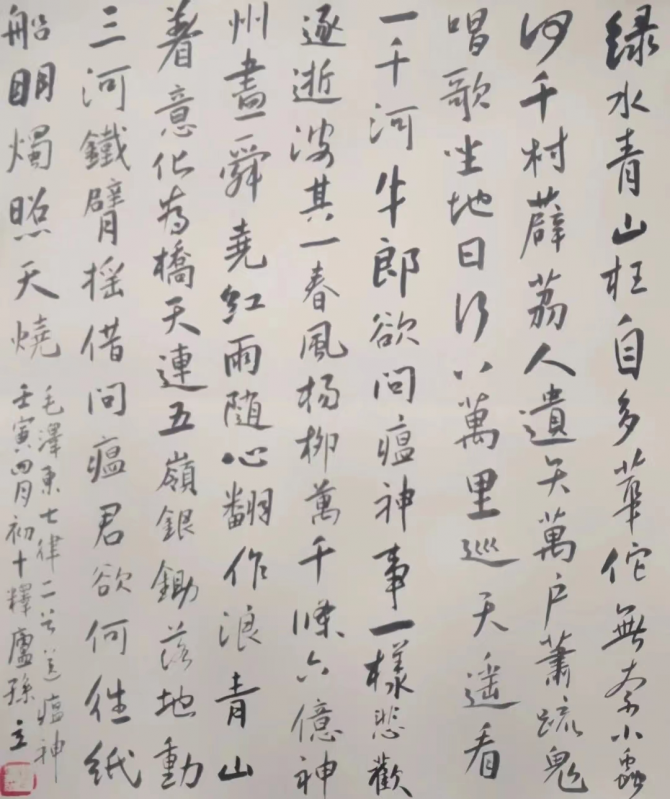 绿水青山枉自多華佗無奈小蟲
何千村薜荔人遺矢萬户蕭疏鬼
唱歌坐地日行八萬里巡天遥看
一千河牛郎欲問瘟神事一樣悲歡
逐逝波其一春風杨柳萬千條六億神
州盡舜堯紅雨随心翻作浪青山
着意化为橋天連五嶺銀鋤落地動
三河鐵臂摇借問瘟君欲何往紙
船明燭照天燒
毛澤東七律二首送瘟神
壬寅四月初十釋廬孫立